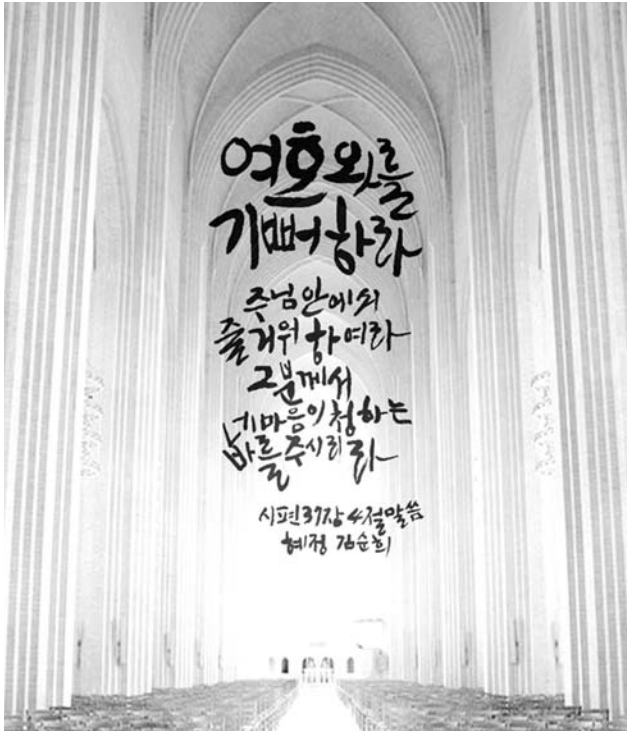 여호와를
기뻐하라
주님안에서
즐거워하여라
그분께서
네마음이청하는
바를주시리라
시편37장4절말씀
혜정 김순희